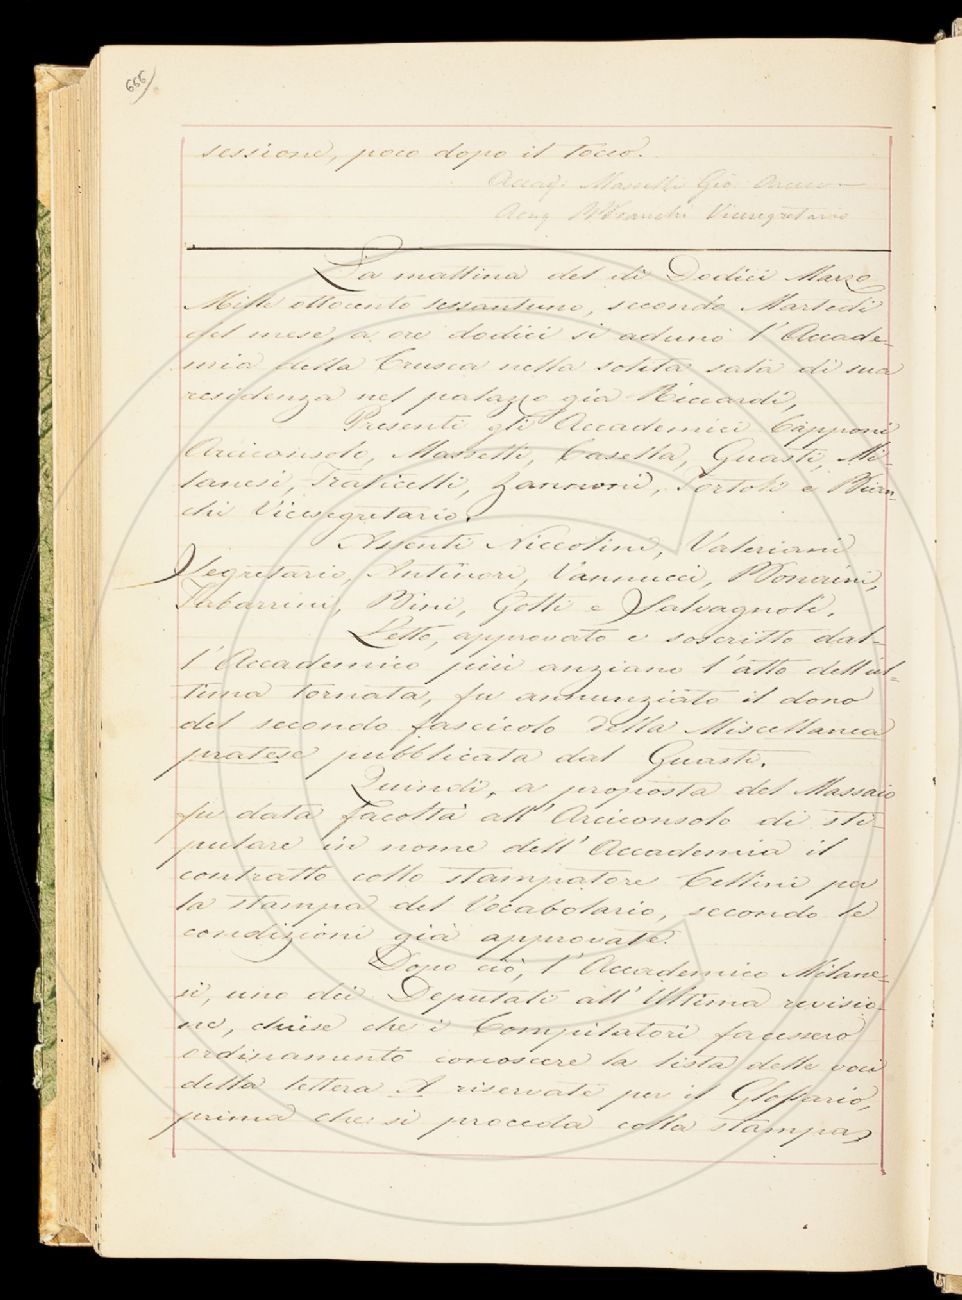 666
sessione, poco dopo il tocco.
Accad. Masselli Gio.
Accad. B Bianchi Vicesegretario
La mattina del dì Dodici Marzo
Mille ottocento sessantuno, secondo Martedì
del mese, a ore dodici si adunò l'Accade-
mia della Crusca nella solita sala di sua
residenza nel palazzo già Riccardi,
Presenti gli Accademici Capponi
Arciconsolo, Masselli, Casella, Guasti, Mi-
lanesi, Fraticelli, Zannoni, Tortoli e Bian-
chi Vicesegretario.
Assenti Niccolini, Valeriani
Segretario, Antinori, Vannucci, Bonaini,
Tabarrini, Bini, Gotti e Salvagnoli.
Letto, approvato e soscritto dal-
l'Accademico più anziano l'atto dell'ul-
tima tornata, fu annunziato il dono
del secondo fascicolo della Miscellanea
pratese pubblicata dal Guasti.
Quindi, a proposta del Massaio
fu data facoltà all'Arciconsolo di sti-
pulare in nome dell'Accademia il
contratto collo stampatore Cellini per
la stampa del Vocabolario, secondo le
condizioni già approvate.
Dopo ciò, l'Accademico Milane-
si, uno dei Deputati all'Ultima revisio-
ne, chiese che i Compilatori facessero
ordinamento conoscere la lista delle voci
della lettera A riservate per il Glossario,
prima che si proceda colla stampa,